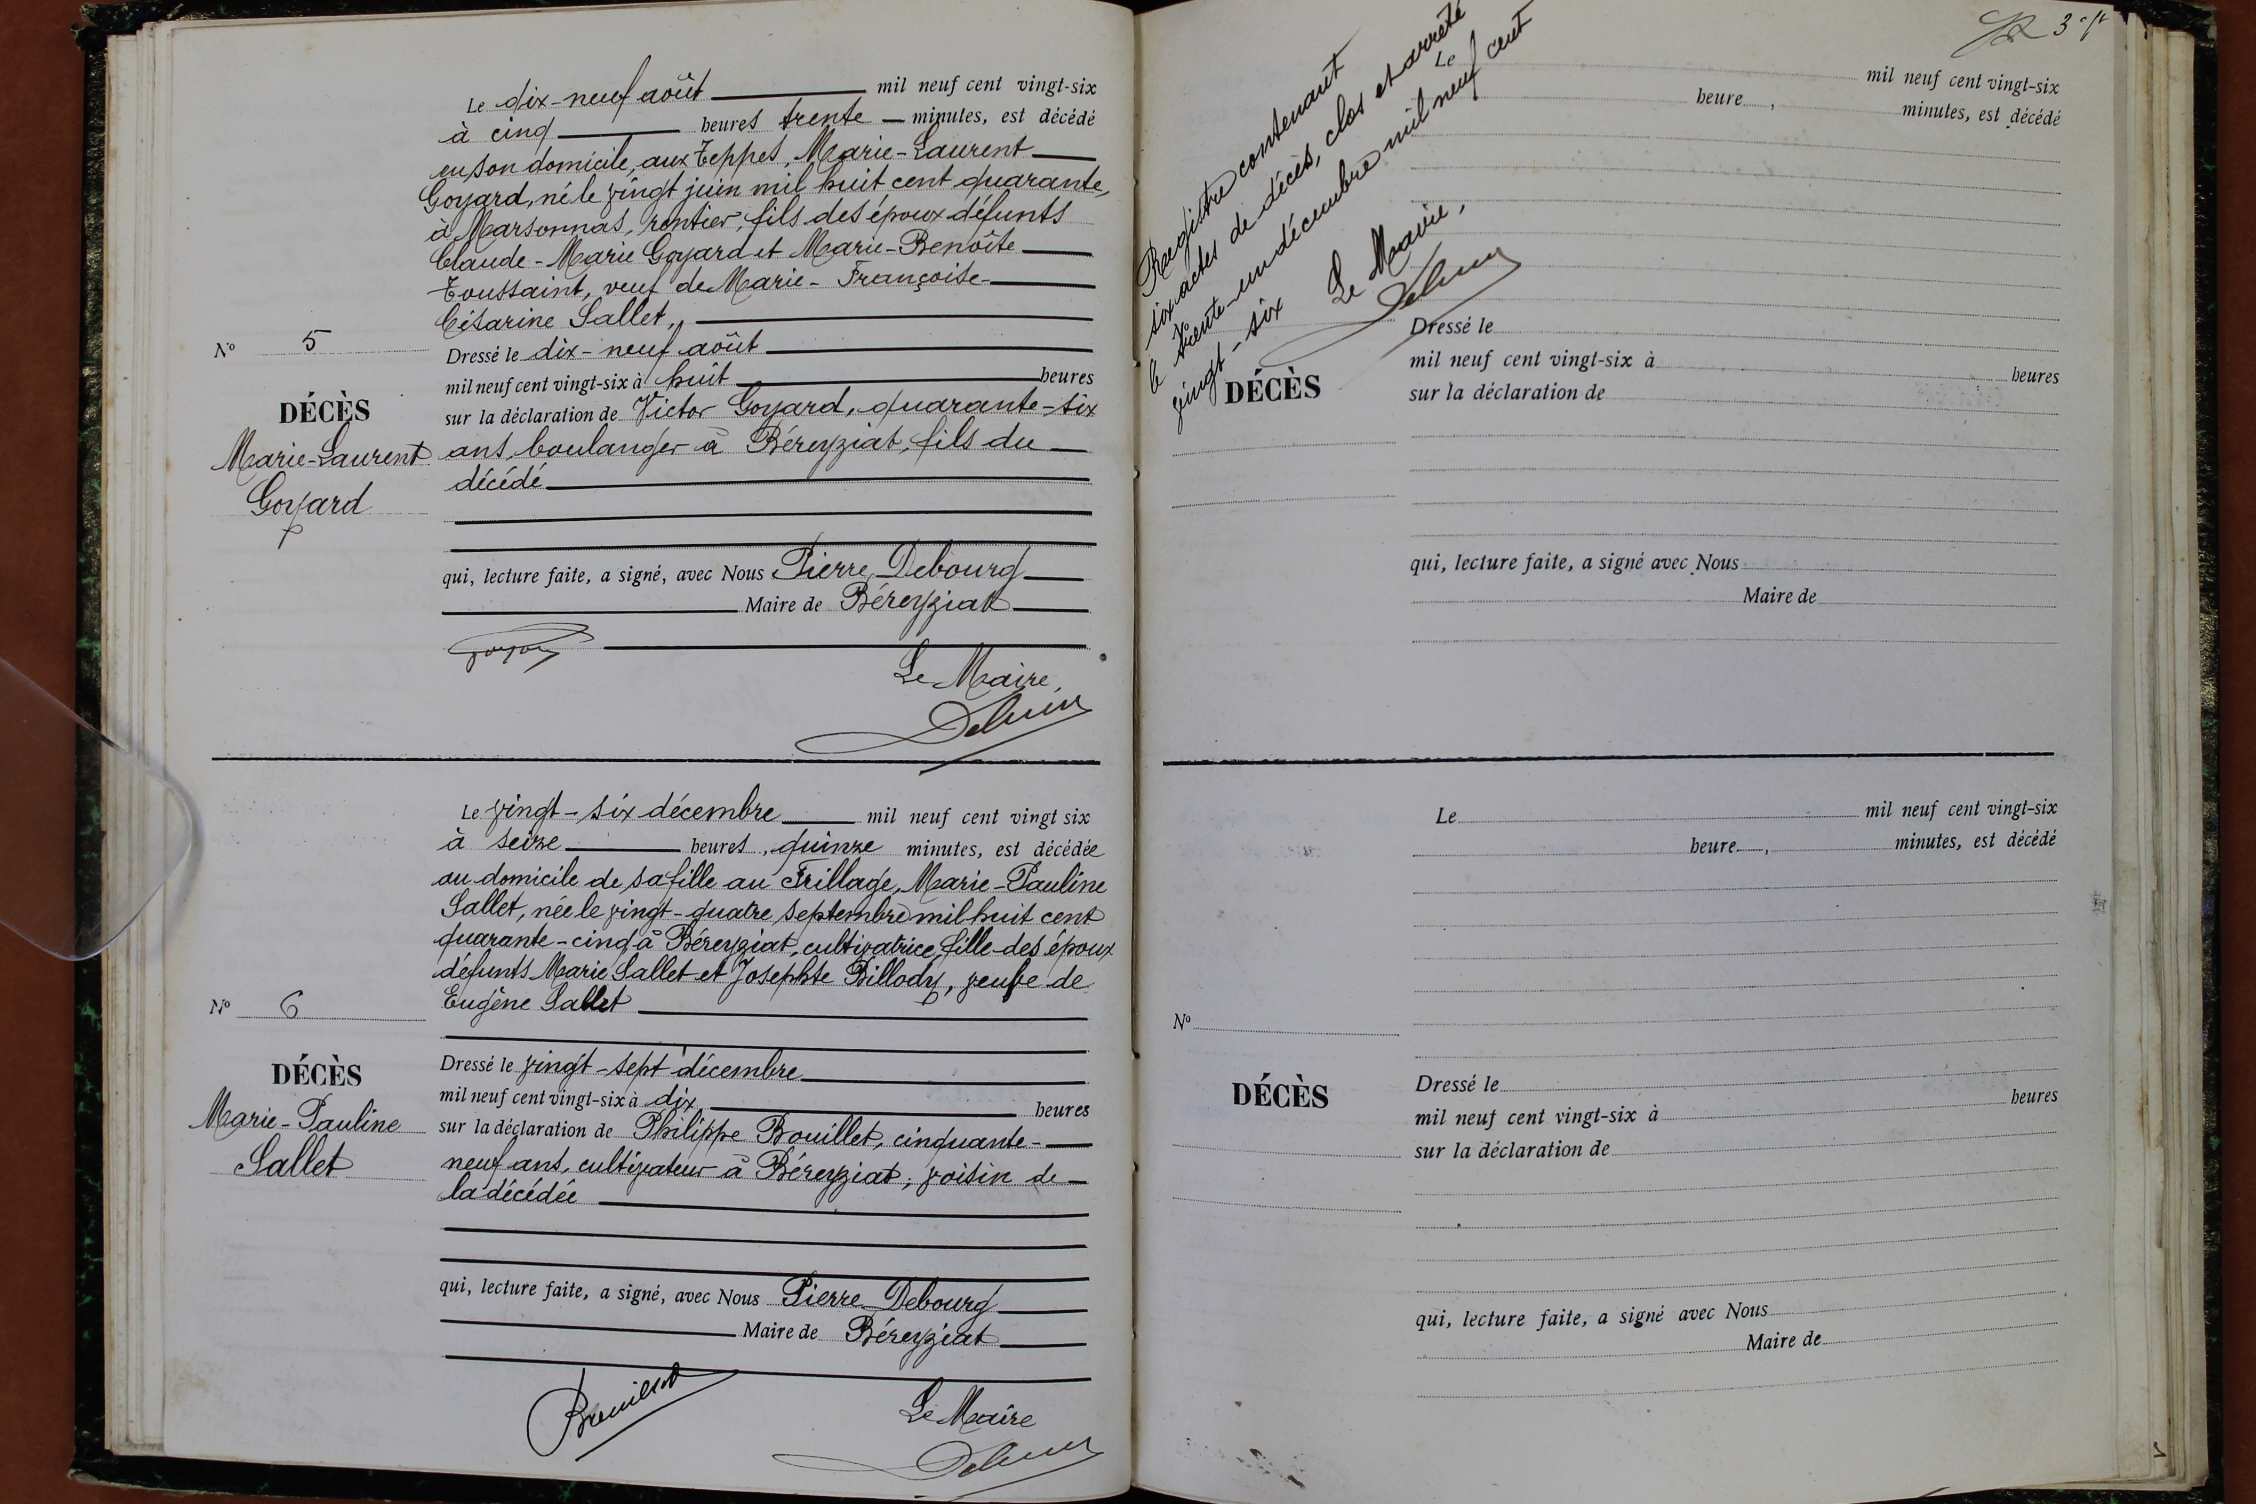 Le dix-neuf août mil neuf cent vingt-six
à cinq heures trente minutes, est décédé
en son domicile, aux Teppes, Marie-Laurent
Goyard, né le vingt juin mil huit cent quarante,
à Marsonnas, rentier, fils des époux défunts
Claude-Marie Goyard et Marie-Benoîte
Toussaint, veuf de Marie-Françoise-
Césarine Sallet,
Nº 5
DÉCÈS
Marie-Laurent
Goyard
Dressé le dix-neuf août
mil neuf cent vingt-six à huit heures
sur la déclaration de Victor Goyard, quarante-six
ans, boulanger à Béreyziat, fils du
décédé
qui, lecture faite, a signé, avec Nous Pierre Debourg
Maire de Béreyziat
Le Maire,
Le vingt-six décembre mil neuf cent vingt six
à seize heures, quinze minutes, est décédée
au domicile de sa fille au Frillage, Marie-Pauline
Sallet, née le vingt-quatre septembre mil huit cent
quarante-cinq à Béreyziat, cultivatrice, fille des époux
défunts Marie Sallet et Josephte Billody, veuve de
Eugène Sallet
Nº 6
DÉCÈS
Marie-Pauline
Sallet
Dressé le vingt-sept décembre
mil neuf cent vingt-six à dix heures
sur la déclaration de Philippe Bouillet, cinquante-
neuf ans, cultivateur à Béreyziat, voisin de
la décédée
qui, lecture faite, a signé, avec Nous Pierre Debourg
Maire de Béreyziat
Le Maire
Registre contenant
six actes de décès, clos et arrêté
le trente-un décembre mil neuf cent
vingt-six
Le Maire,
Le mil neuf cent vingt-six
heure , minutes, est décédé
DÉCÈS
Dressé le
mil neuf cent vingt-six à heures
sur la déclaration de
qui, lecture faite, a signé avec Nous
Maire de
Le mil neuf cent vingt-six
heure , minutes, est décédé
Nº
DÉCÈS
Dressé le
mil neuf cent vingt-six à heures
sur la déclaration de
qui, lecture faite, a signé avec Nous
Maire de